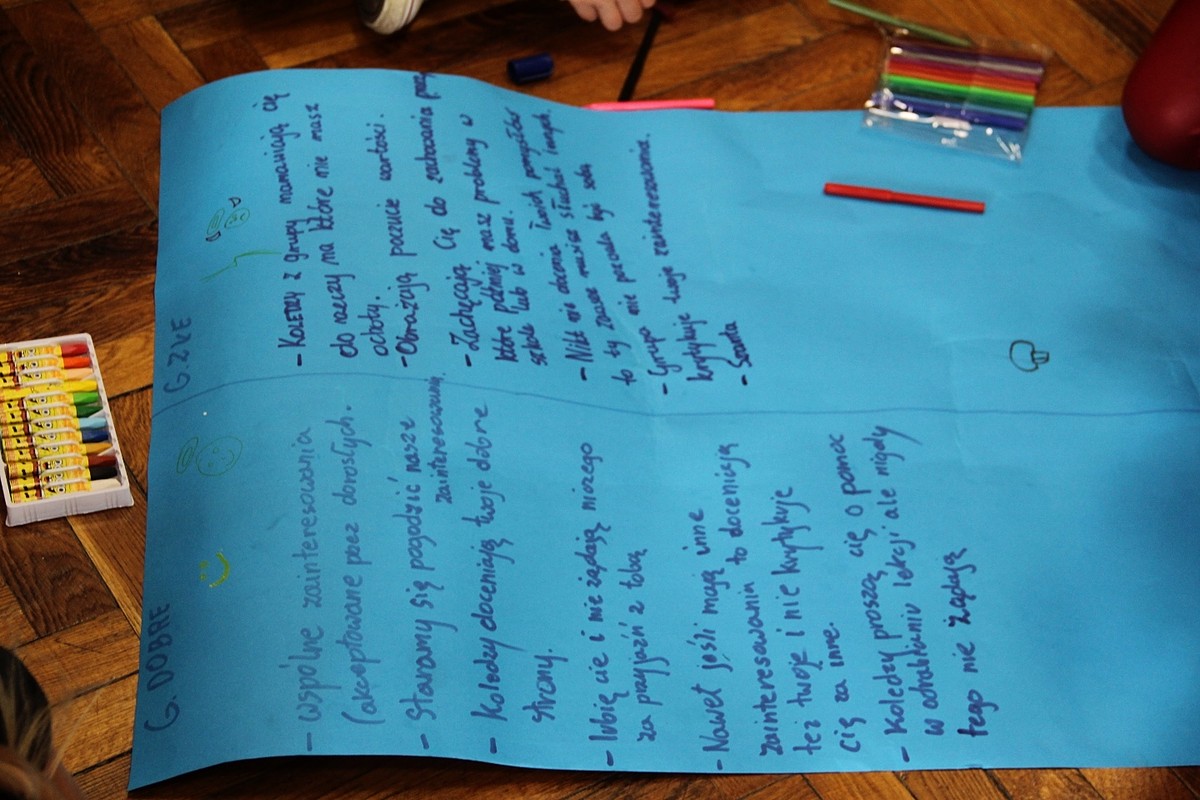 G. DOBRE
- wspólne zainteresowania
(akceptowane przez dorosłych.
- Staramy się pogodzić nasze
zainteresowania.
- Koledzy doceniają twoje dobre
strony.
- lubią cię i nie żądają niczego
za przyjaźń z tobą
- Nawet jeśli mają inne
zainteresowania to doceniają
też twoje i nie krytykuje
cię za inne.
- Koledzy proszą cię o pomoc
w odrabianiu lekcji ale nigdy
tego nie żądają
G. ZŁE
- KOLEDZY z grupy namawiają cię
do rzeczy na które nie masz
ochoty.
- Obrażają poczucie wartości.
- Zachęcają Cię do zachowania przez
które później masz problemy w
szkole lub w domu.
- Nikt nie docenia twoich pomysłów
to ty zawsze musisz słuchać innych
nie pozwala być sobą
- Grupa
krytykuje twoje zainteresowania.